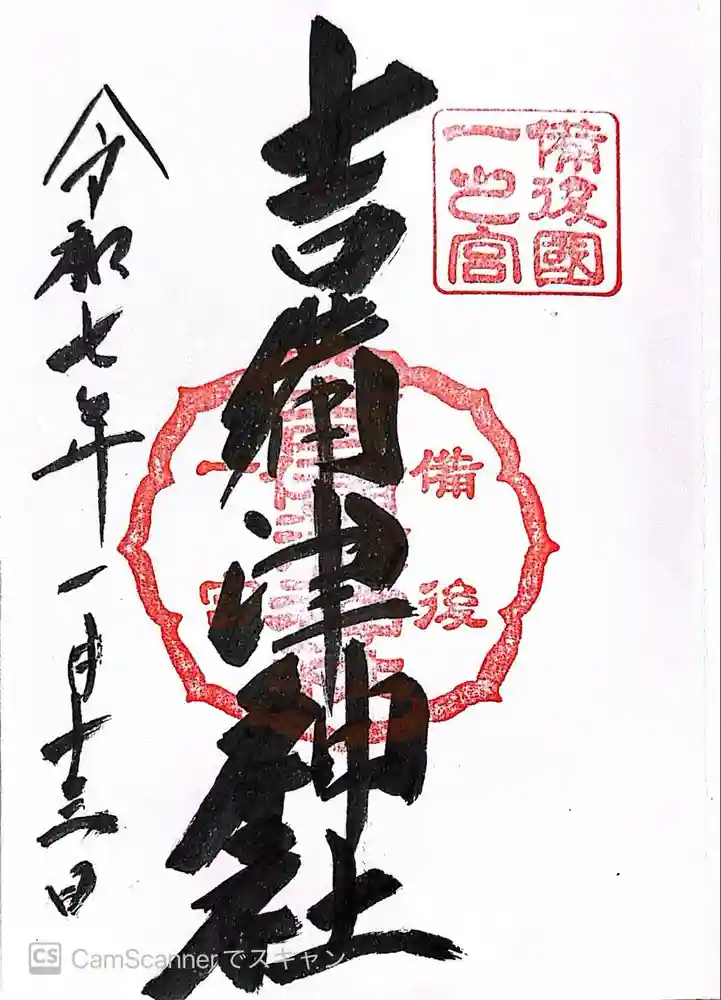 備後國
一之宮
吉備津神社
備後
一宮
令和七年一月十三日
CS CamScannerでスキャン